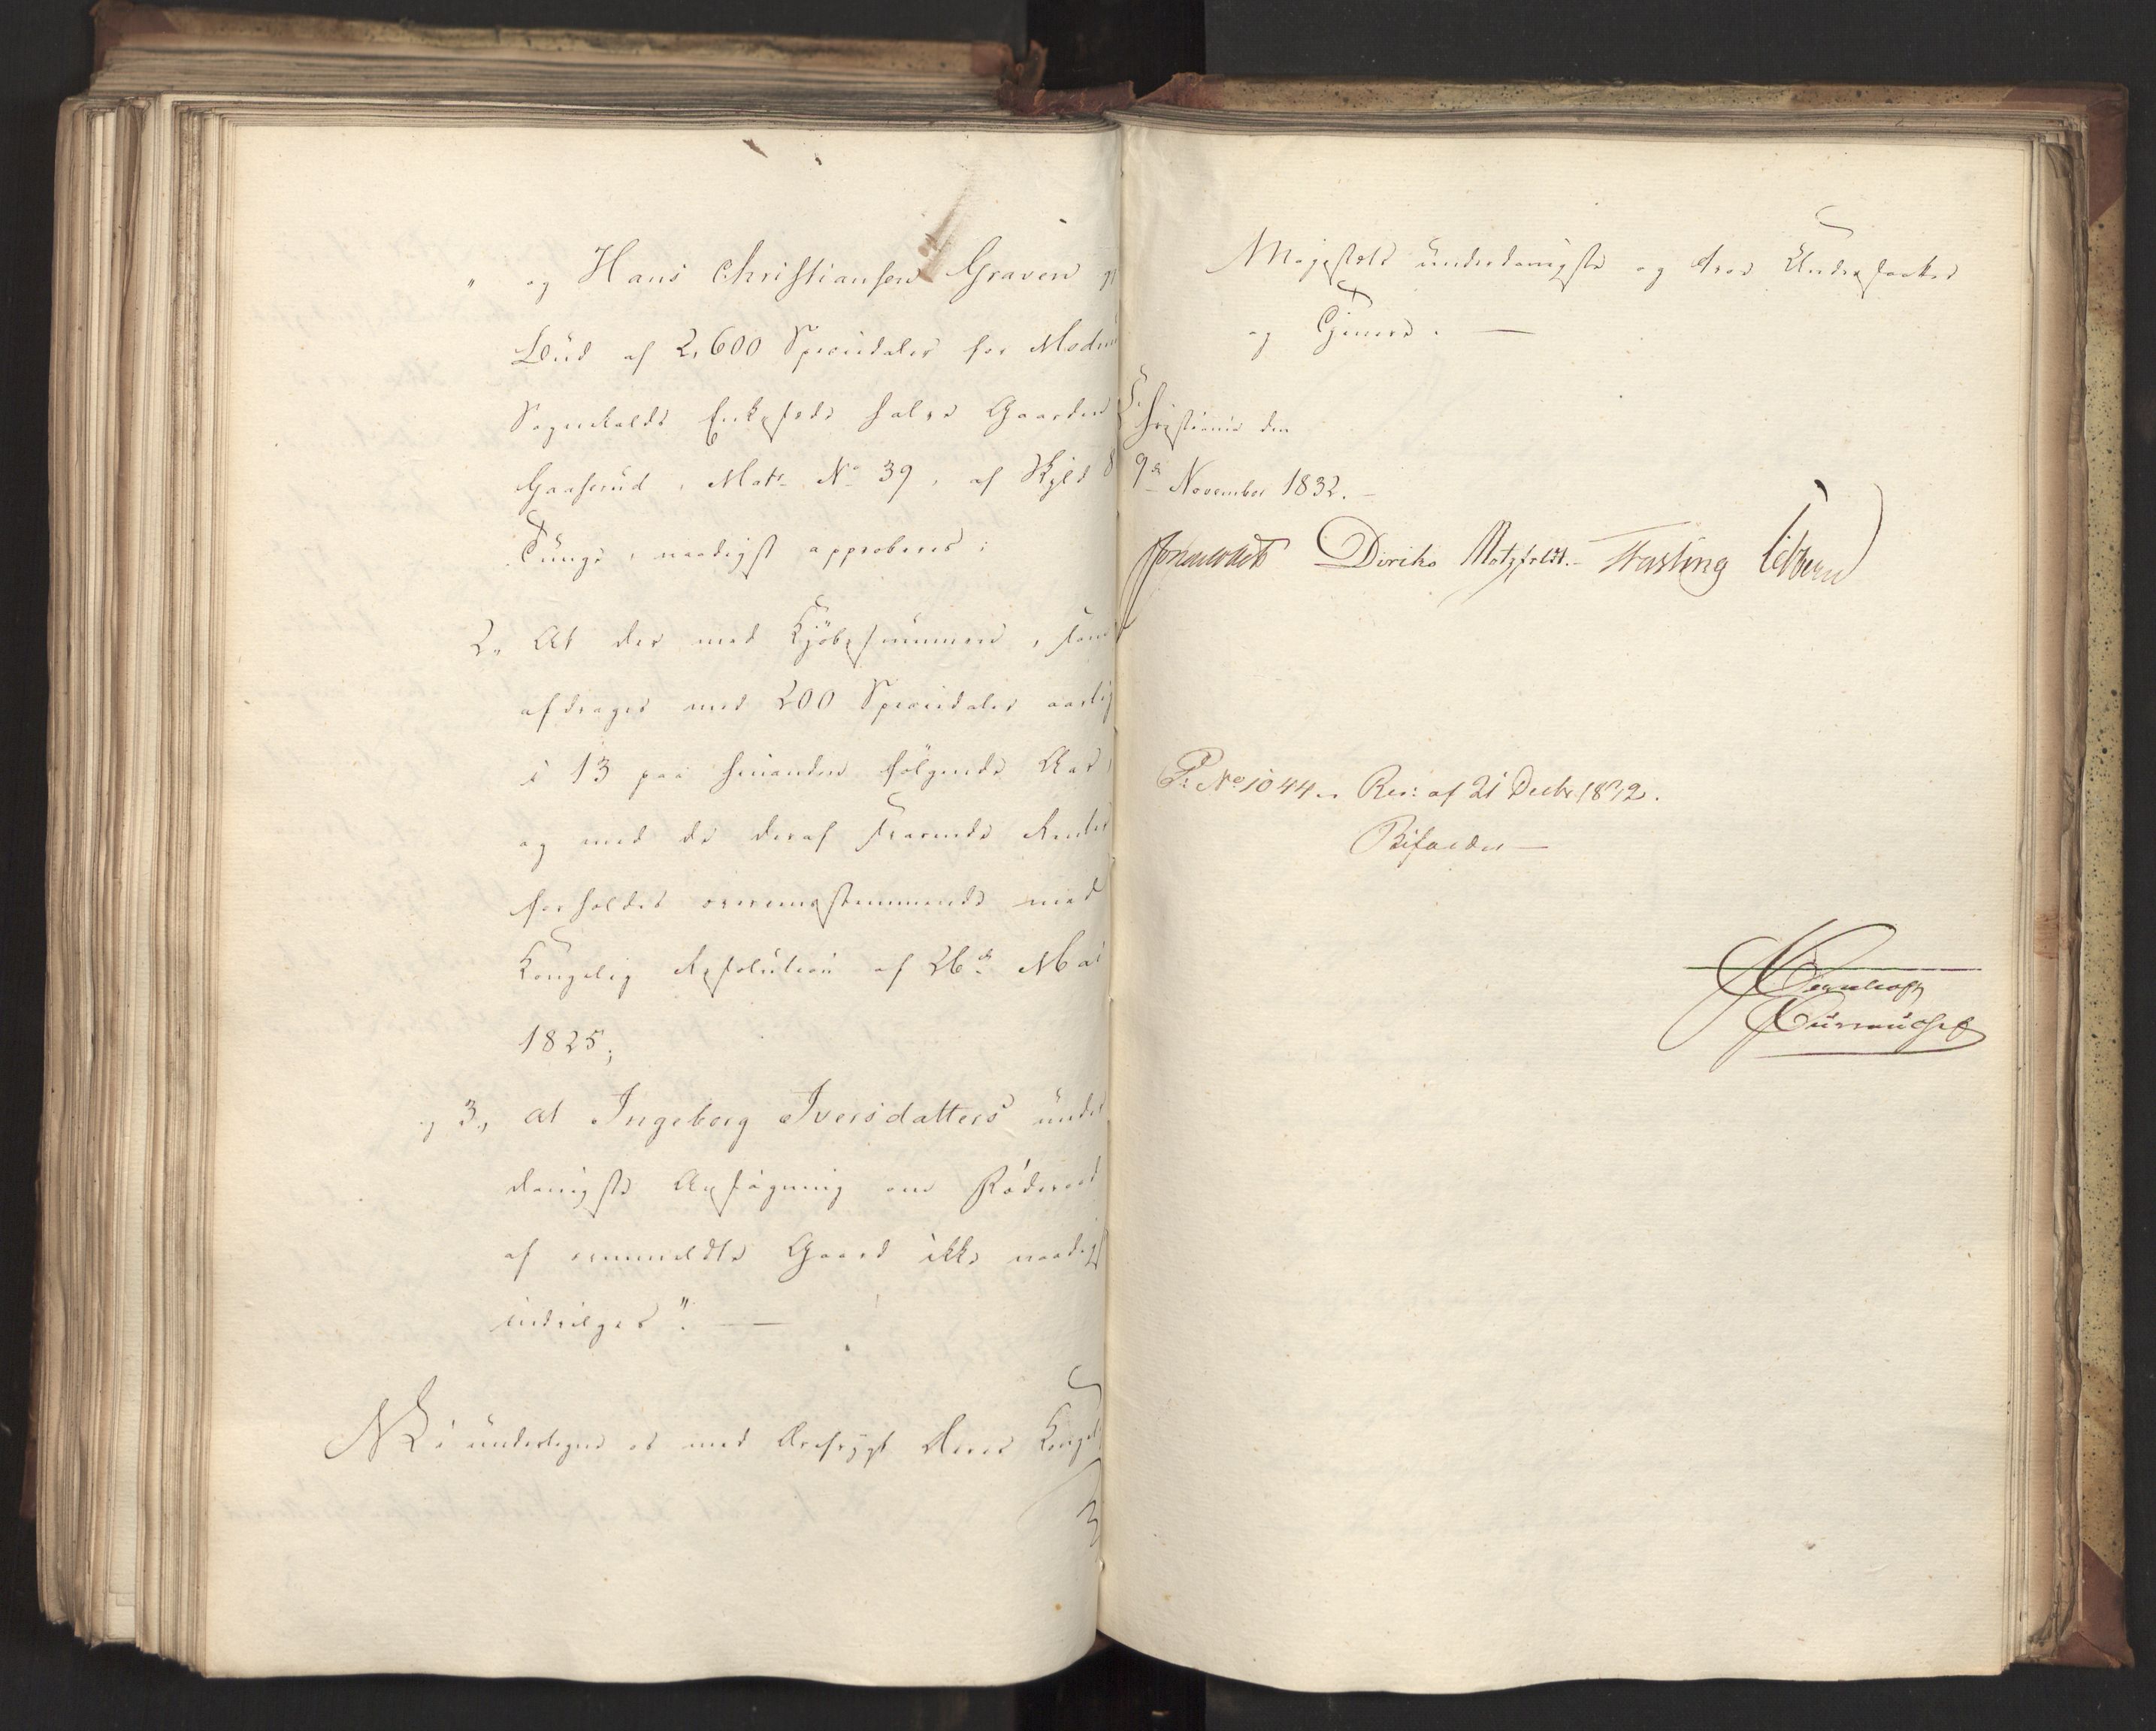 " og Hans Christiansen Graven gj
Bud af 2,600 Speciedaler for Modum
Sognekalds Enkesæde halve Gaarden
Gaaserud, Matr. No 39, af Skyld 8
Tunge, naadigst approberes;
2, At der med Kjøbesummen, som
afdrages med 200 Speciedaler aarlig
i 13 paa hinanden følgende Aar,
og med de deraf svarende Renter
forholdes overensstemmende med
Kongelig Resolution af 26de Mai
1825;
og 3, at Ingeborg Iversdatters under
danigste Ansøgning om
af ommeldte Gaard ikke naadigst
indvilges". —
Vi undertegne os med Ærefrygt Deres Kongel.
Majestæts underdanigste og troe Undersaatter
og Tjenere. —
Christiania den
9de November 1832. —
Diriks Motzfeldt. — Fasting
Pr: No 1044. Res: af 21 Decbr 1832.
Bifaldes —